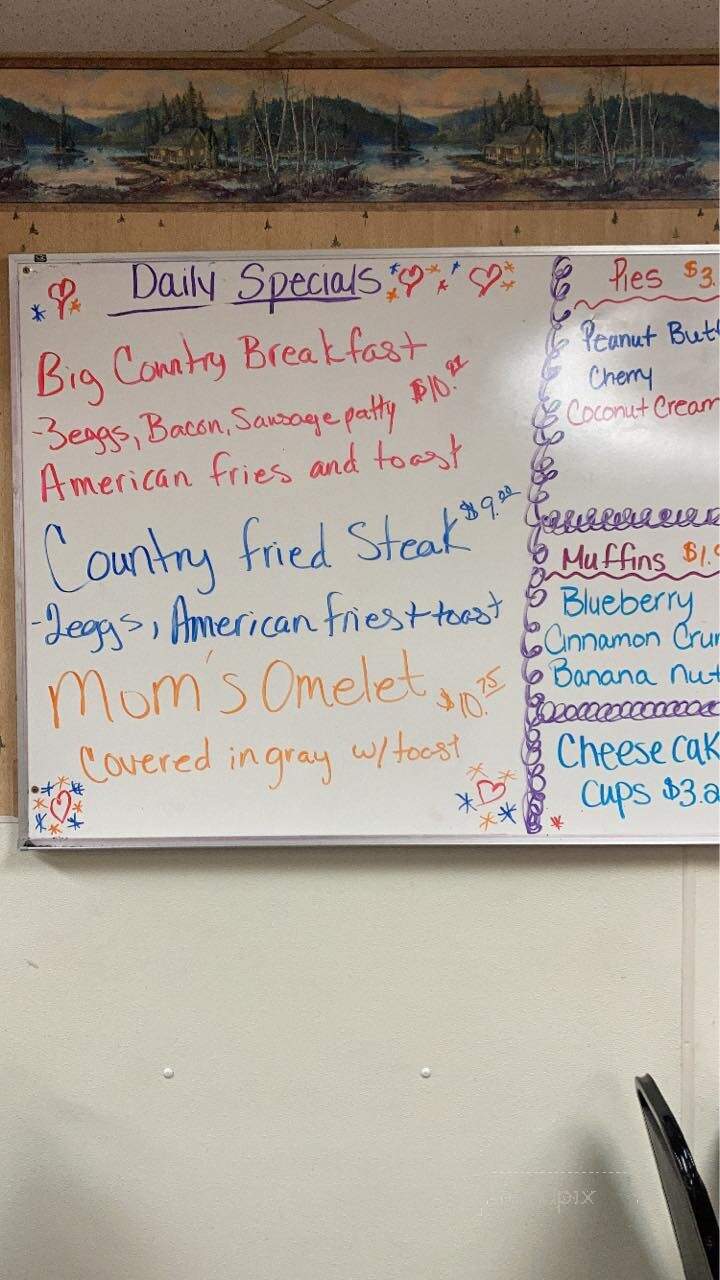 Daily Specials
Big Country Breakfast
-3eggs, Bacon, Sausage patty
American fries and toast
Country fried Steak $9.00
-2eggs, American fries + toast
Mom's Omelet $10.75
Covered in gray w/toast
Pies $3.
Peanut Butt
Cherry
Coconut Cream
Muffins $1.9
Blueberry
Cinnamon Crum
Banana nut
Cheese cak
Cups $3.2
pix